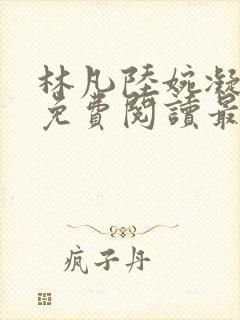 林凡陸婉凝
免費閱讀最
疯子丹